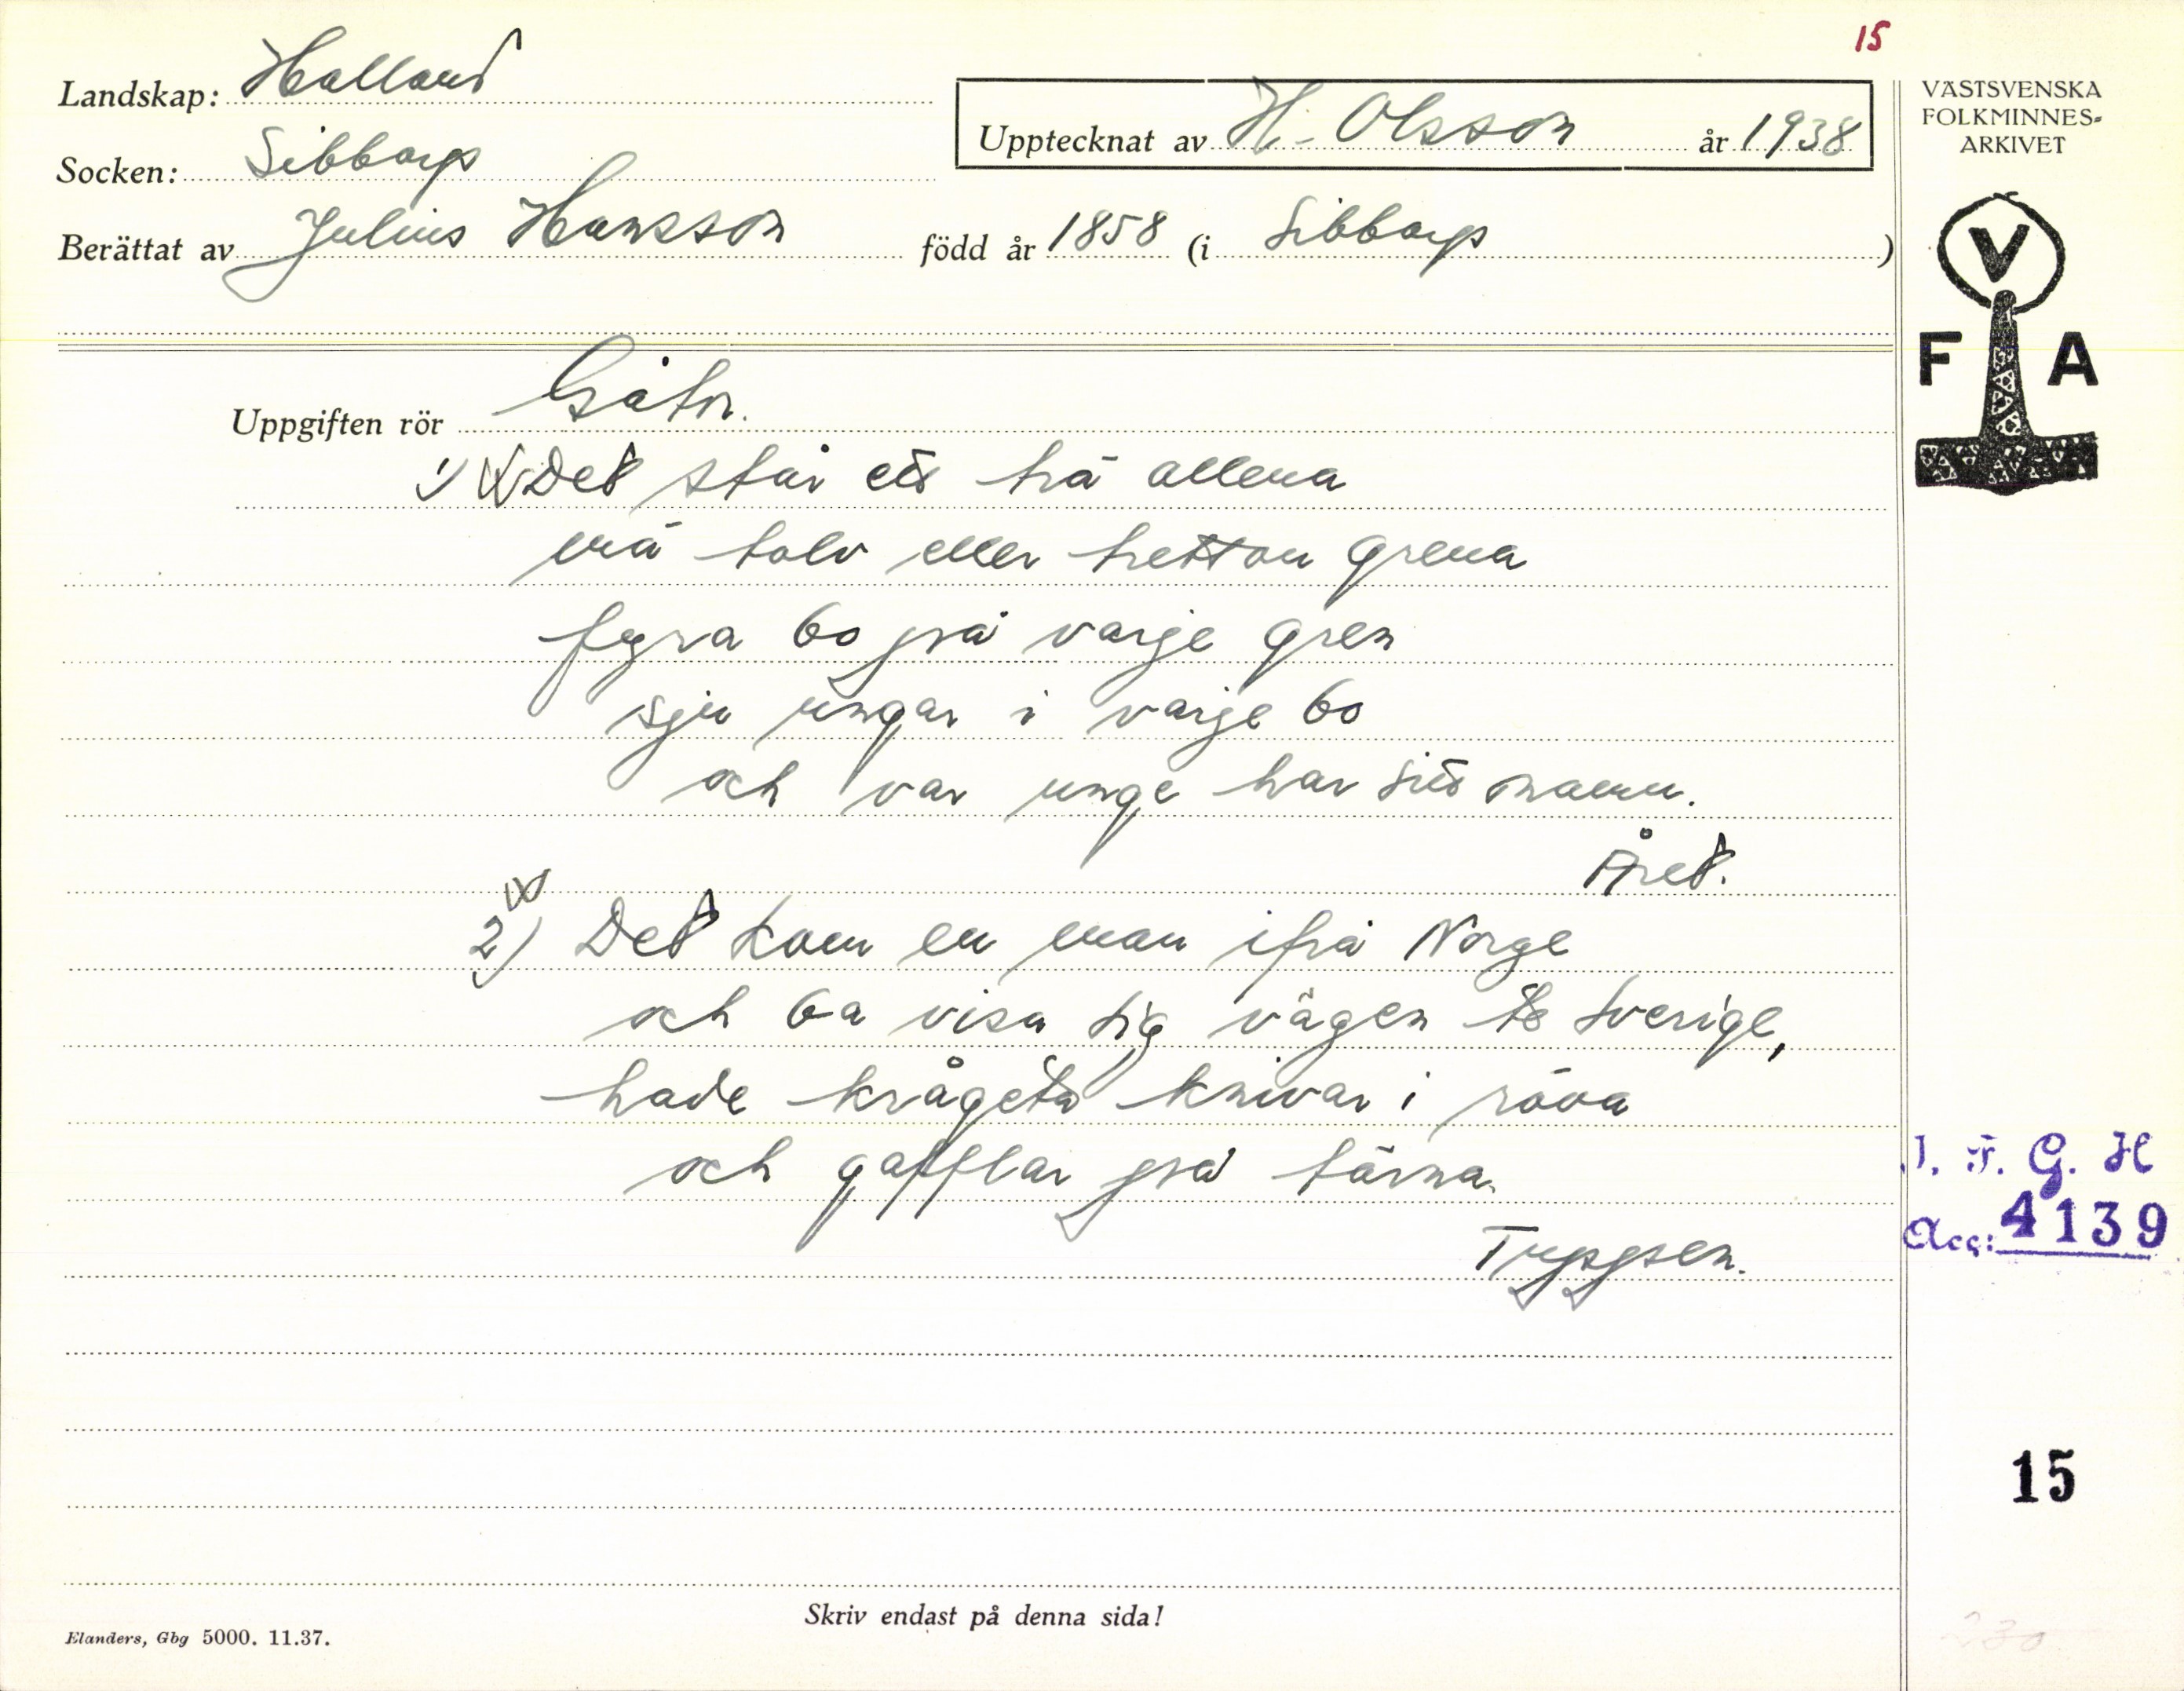 15
Landskap: Halland
Socken: Sibbarp
Upptecknat av H. Olsson år 1938
Berättat av Julius Hansson född år 1858 (i Sibbarp)
VÄSTSVENSKA
FOLKMINNES=
ARKIVET
V
F A
Uppgiften rör Gåtor.
1) Det står ett trä allena
mä tolv eller tretton grena
fyra bo på varje gren
sju ungar i varje bo
och var unge har sitt namn.
Året.
2) Det kom en man ifrå Norge
och ba visa sig vägen te Sverige,
hade krågeta knivar i röva
och gafflar på tärna.
Tuppen.
J. F. G. H
Acc: 4139
15
Skriv endast på denna sida!
Elanders, Gbg 5000. 11.37.